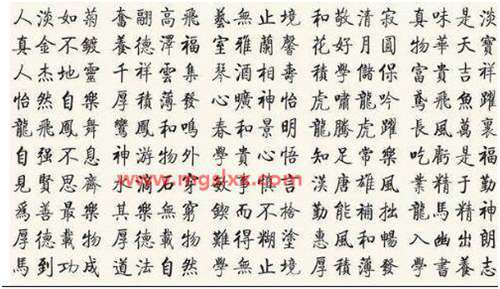 人淡如菊 奮翮高飛 藝無止境 和敬清寂 真味是淡
真金不鍍 養德澤福 室雅蘭馨 花好月圓 物華天寶
人杰地靈 千祥雲集 琴酒相壽 積學儲保 富貴吉祥
怡然自樂 厚積薄發 心曠神怡 虎嘯龍吟 鳶飛魚躍
龍飛鳳舞 鸞鳳和鳴 春和景明 龍騰虎躍 長風萬裏
自强不息 神游物外 學貴心悟 知足常樂 吃虧是福
見賢思齊 水 石 言 漢唐雄風 勤
爲善最樂 其樂無窮 而不 勤能補拙 馬精神
厚德載物 難得糊塗 惠風和暢 入幽出朗
馬到功成 道法自然 學無止境 厚積薄發 學書養志